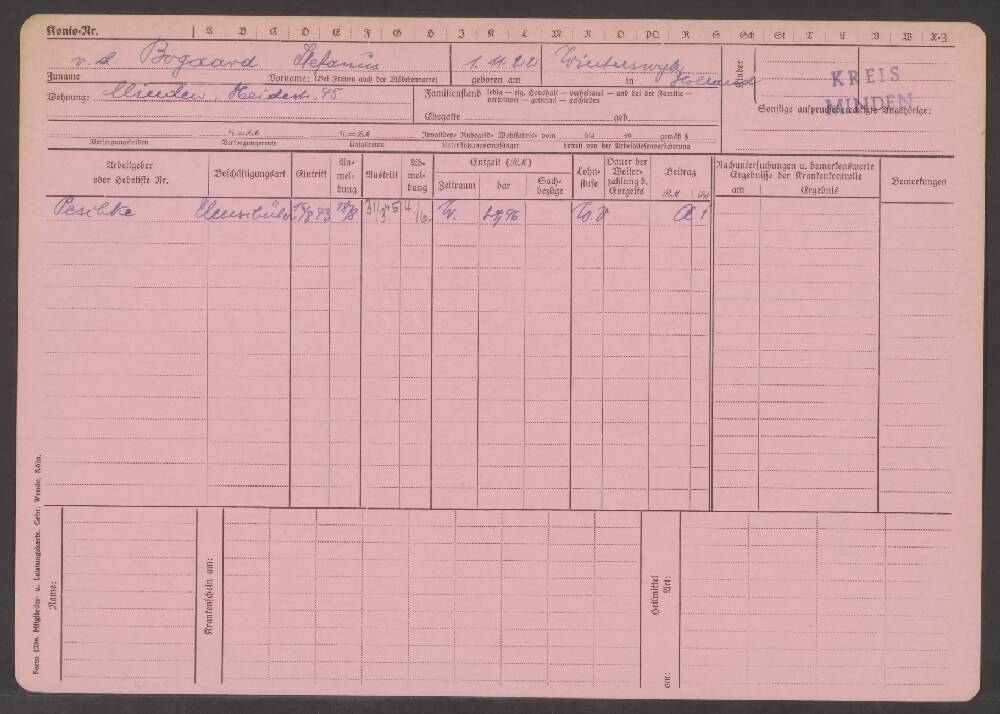 Konto-Nr. A B C D E F G H J K L M N O PQ R S Sch St T U V W X-Z
v. d. Bogaard Stefanus 1. 11. 22 Winterswyk Holland
Zuname Vorname: (Bei Frauen auch der Mädchenname) geboren am in
Kinder
KREIS MINDEN
Wohnung: Minden, Heidestr. 45
Familienstand ledig — eig. Haushalt — verheiratet — und bei der Familie — verwitwet — getrennt — geschieden
Sonstige anspruchsberechtigte Angehörige:
Ehegatte geb.
% = RM % = RM Invaliden- Ruhegeld- Wohlfahrts- vom bis so gemäß §
Versorgungsleiden Versorgungsrente Unfallrente Unterstützungsempfänger befreit von der Arbeitslosenversicherung
Arbeitgeber oder Hebeliste Nr.
Beschäftigungsart
Eintritt
An-meldung
Austritt
Ab-meldung
Entgelt (RM)
Zeitraum
bar
Sachbezüge
Lohnstufe
Dauer der Weiterzahlung d. Entgelts
Beitrag
RM
Rpf
Nachuntersuchungen u. bemerkenswerte Ergebnisse der Krankenkontrolle
am
Ergebnis
Bemerkungen
Peschke 43 18/8 31/3 45 W. A 1
Form 123e. Mitglieder- u. Leistungskarte. Gebr. Wende, Köln.
Name:
Krankenschein am:
Heilmittel Art:
am: